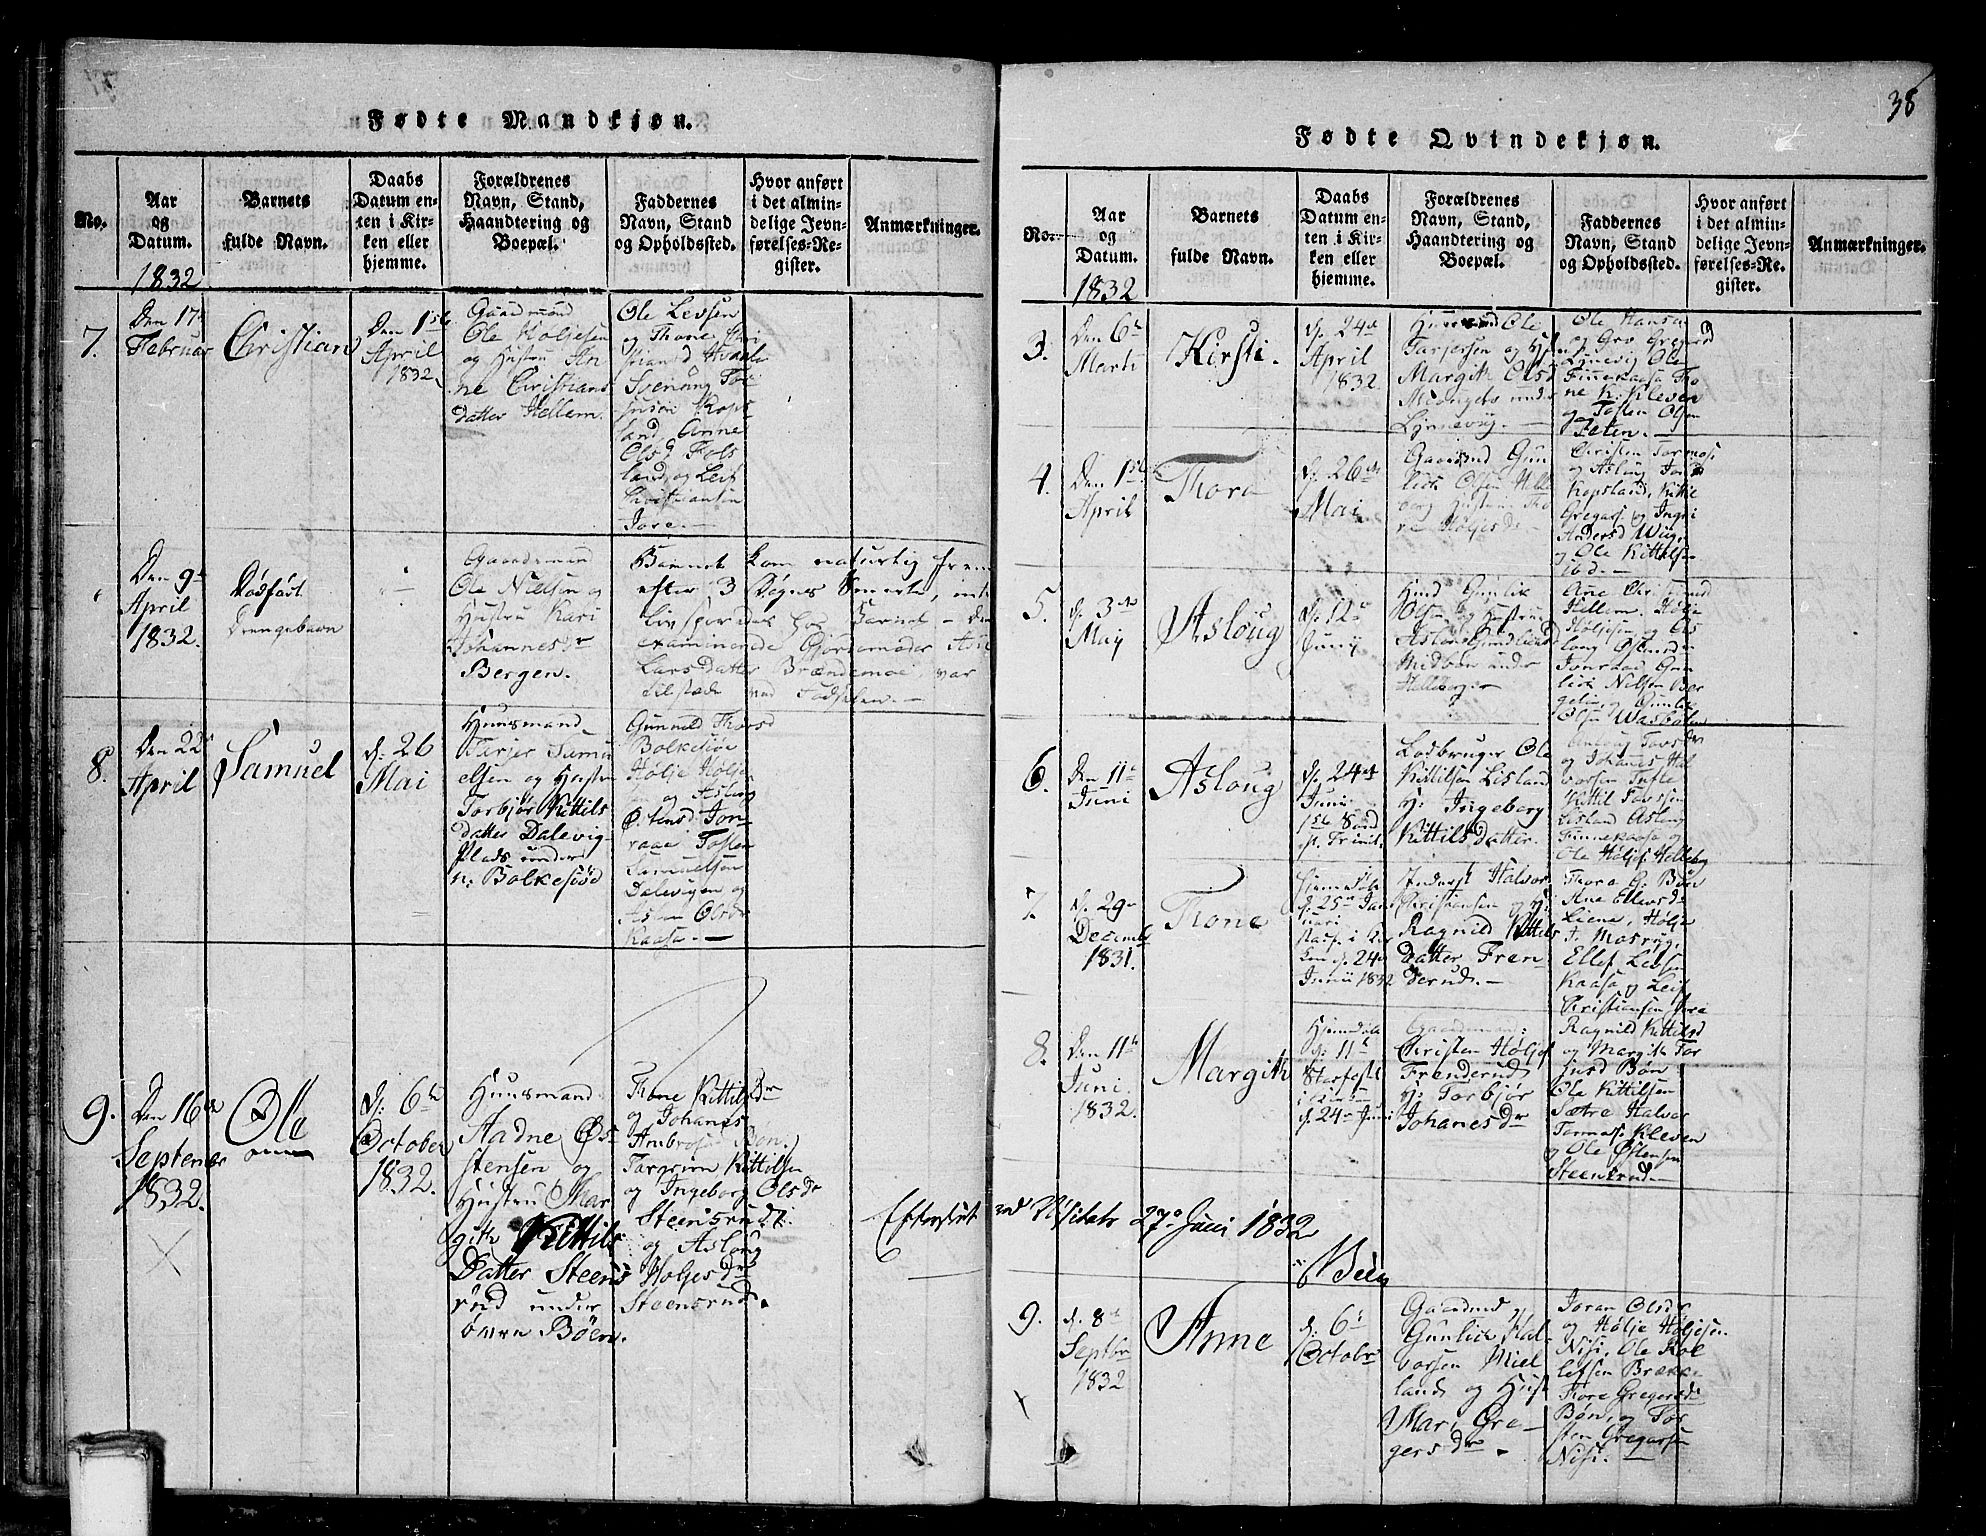 Fødte Mandkjøn.
No.
Aar
og
Datum.
1832
Barnets
fulde Navn.
Daabs
Datum en-
ten i Kir-
ken eller
hjemme.
Forældrenes
Navn, Stand,
Haandtering og
Boepæl.
Faddernes
Navn, Stand
og Opholdssted.
Hvor anført
i det almin-
delige Jevn-
førelses-Re-
gister.
Anmærkninger.
7.
Den 17
Februar
Christian
Den 1ste
April
1832
Gaardmand
Ole Holjesen
og Hustru An
ne Christians
datter Hellem.
Ole Levsen
og Thone Chri
stiansd
Svenung
land, Anne
Olsd. Fols
land, og Leif
Christiansen
Jore.
Den 9de
April
1832.
Dødfødt
Drengebarn
Gaardmand
Ole Nielsen og
Hustru Kari
Johannesdr
Bergen.
Barnet kom naturlig frem
efter 3 Døgns Smerte, intet
Liv spordes hos Barnet - Den
examinerede Gjordemoder
Larsdatter Brændemoe, var
tilstæde ved Fødselen.
8.
Den 22
April
Samuel
d: 26
Mai
Huusmand
Terjer Samu
elsen og Hustru
Torbjør Kittils
datter Dalevig
Plads under
n: Bolkesiøe
Gunnild Thorsd
Bolkesiøe
Hølje Høljes
og Aslaug
Østensd Jon-
raae Tosten
Samuelsen
Dalevigen og
Olsdr
Kaasa.
9.
Den 16de
September
1832.
Ole
d: 6te
October
1832.
Huusmand
Aadne Øs-
stensen og
Hustru Mar
githe Kittils
Datter Steens
rud under
Bøen.
Thone Kittilsdr
og Johanes
Ambros Bøn.
Targrim Kittilsen
og Ingeborg Olsdr
Steensrud.
og Aslaug
Holjesdr
Steensrud.
38
Fødte Qvindekjøn.
No.
Aar
og
Datum.
1832
Barnets
fulde Navn.
Daabs
Datum en-
ten i Kir-
ken eller
hjemme.
Forældrenes
Navn, Stand,
Haandtering og
Boepæl.
Faddernes
Navn, Stand
og Opholdssted.
Hvor anført
i det almin-
delige Jevn-
førelses-Re-
gister.
Anmærkninger.
3.
Den 6te
Marti
Kirsti.
d. 24de
April
1832.
Huusmand Ole
Tarjersen og
Margith Olsd
under
Lynnevig.
Ole Hansen
og Gro Gregersd
Lynnevig Ole
Finnekaasa Tho
ne K. Kleven
og Tosten Olsen
Teten.
4.
Den 1ste
April
Thora
d. 26de
Mai
Gaardmd Gun
lich Olsen Helle
berg Hustru Tho
ra Høljesdr.
Christen Tormos
og Aslaug
Kopsland, Kittil
Gregers og Ingri
Andersd Wiig,
og Ole Kittilsen
ibd.
5.
d. 3de
May
Asloug
d. 12
Juny
Hmd Gunlik
Olsen og Hustru
Aslaug
Midbøen under
Helleberg.
Ane Christensd
Hellem. Hølje
Høljesen og As
loug Østensd
Jonraae Gun
lich Nielsen Ber
gelien og Gunlik
Olsen Wasbøten
6.
Den 11te
Juni
Asloug
d. 24de
Juni
1ste Sønd
ef. Trinit.
Lodbruger Ole
Kittilsen Lisland
H: Ingeborg
Kittilsdatter.
og Johanes Hal
vorsen Tufte
Kittil Torssen
Lisland Aslaug
Finnekaasa og
Ole Høljes. Helleberg
7.
d. 29de
December
1831.
Thone
Hjemmedøbt
d. 25de Janu
uari
i Kir
ken d. 24de
Junii 1832
Inderst Halvor
Christiansen og H:
Ragnild Kittils
datter Fren-
derud.
Thora G. Bøn
Ane Ellevsdr
Liene, Hølje
T. Moseryg,
Ellef Levsen
Kaasa og Leif
Christiansen Jore
8.
Den 11te
Juni
1832.
Margith
Hjemdøbt
d. 11te
Stadfæstet
i Kirken
d. 24de Juni
Gaardmand:
Christen Høljes
Frenderud
H: Torbjør
Johanesdr
Ragnild Kittilsd
og Margith Tor
Bøn
Ole Kittilsen
Sætre Halvor
Tormos. Kleven
og Ole Østensen
Steensrud.
Efterseet ved Visitats 27de Juni 1832
9.
d. 8de
Septbr
1832
Anne
d. 6te
Octobr
Gaardmd
Gunlich Hal-
vorsen Miel
land og Hust
Mari Gre-
gersdr.
Joran Olsdr
og Hølje Høljesen
Nisi. Ole Rol
lefsen Brække
Thore Gregersdr
Bøn, og Tor
sten Gregersen
Nisi.